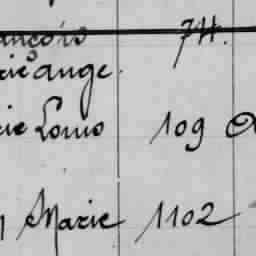 ançois 74.
rie ange.
rie Louis 109
Marie 1102